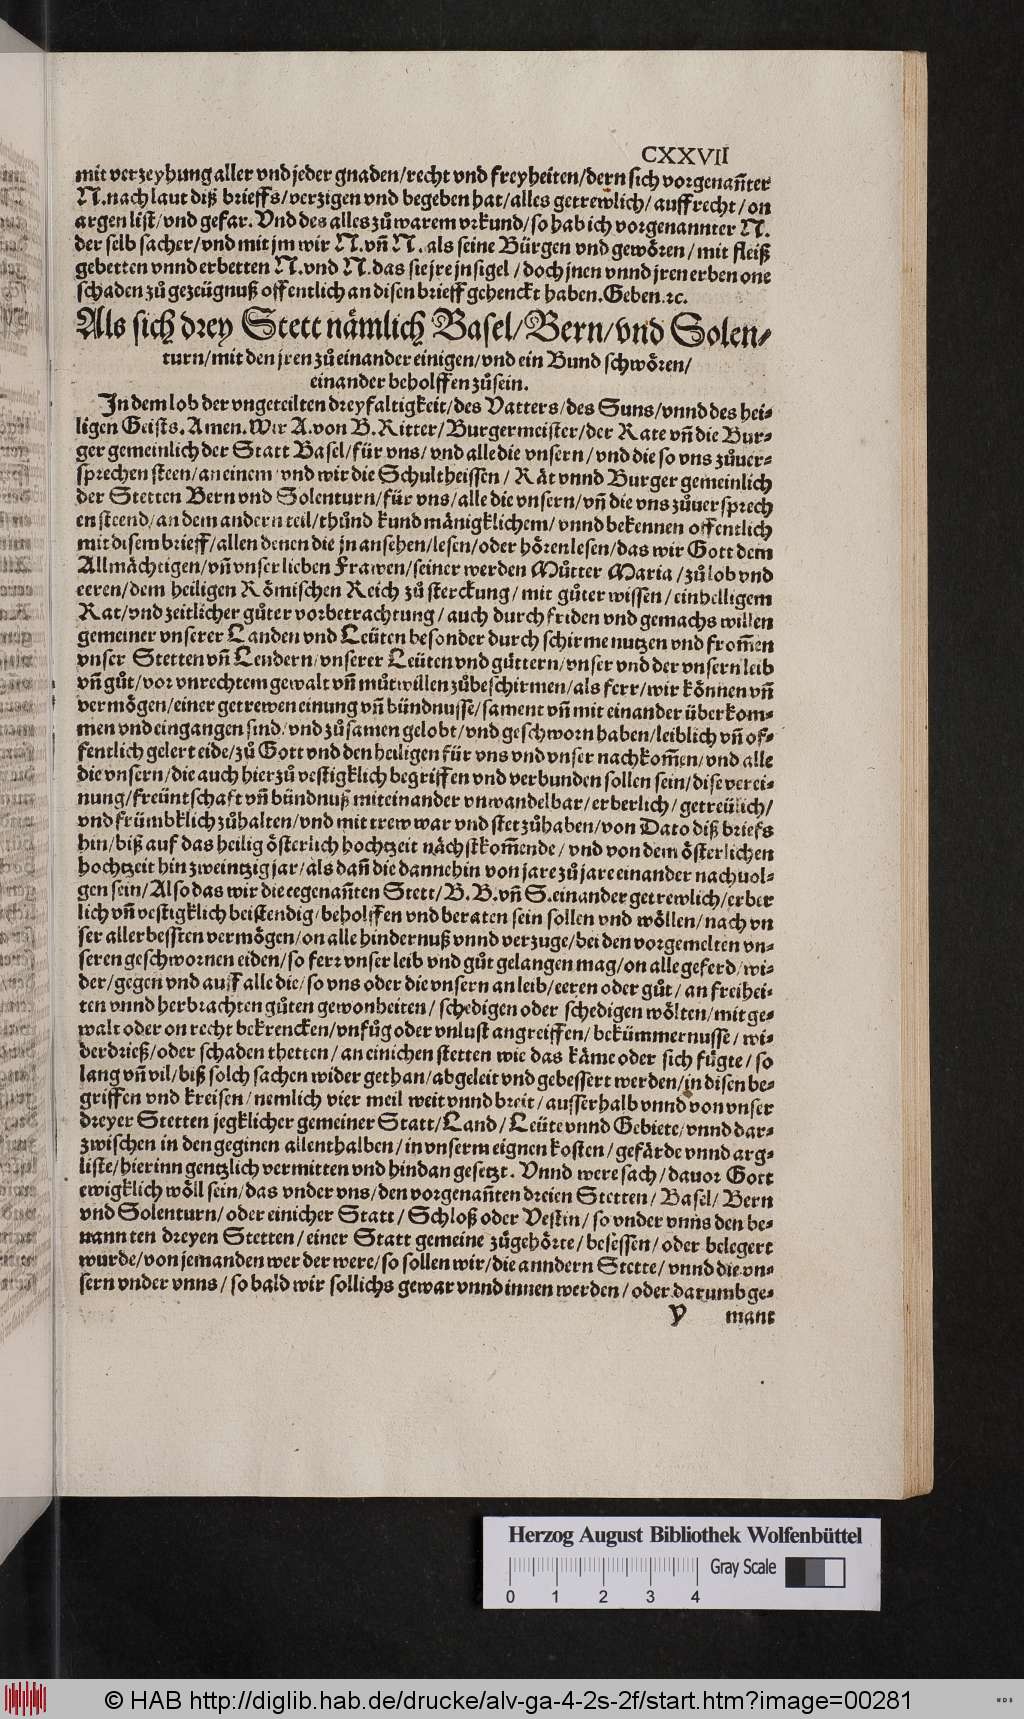 CXXVII
mit verzeyhung aller vnd jeder gnaden/recht vnd freyheiten/dern sich vorgenañter
N. nach laut diß brieffs/verzigen vnd begeben hat/alles getrewlich/auffrecht/on
argen list/vnd gefar. Vnd des alles zů warem vrkund/so hab ich vorgenannter N.
der selb sacher/vnd mit jm wir N. vñ N. als seine Bürgen vnd gewören/mit fleiß
gebetten vnnd erbetten N. vnd N. das sie jre jnsigel/doch jnen vnnd jren erben one
schaden zů gezeügnuß offentlich an disen brieff gehenckt haben. Geben. ꝛc.
Als sich drey Stett nämlich Basel/Bern/vnd Solen-
turn/mit den jren zů einander einigen/vnd ein Bund schwören/
einander beholffen zů sein.
In dem lob der vngeteilten dreyfaltigkeit/des Vatters/des Suns/vnnd des hei-
ligen Geists. Amen. Wir A. von B. Ritter/Burgermeister/der Rate vñ die Bur-
ger gemeinlich der Statt Basel/für vns/vnd alle die vnsern/vnd die so vns zůver-
sprechen steen/an einem/vnd wir die Schultheissen/Rät vnnd Burger gemeinlich
der Stetten Bern vnd Solenturn/für vns/alle die vnsern/vñ die vns zůversprech
en steend/an dem andern teil/thůnd kund mänigklichem/vnnd bekennen offentlich
mit disem brieff/allen denen die jn ansehen/lesen/oder hören lesen/das wir Gott dem
Allmächtigen/vñ vnser lieben Frawen/seiner werden Můtter Maria/zů lob vnd
eeren/dem heiligen Römischen Reich zů sterckung/mit gůter wissen/einhelligem
Rat/vnd zeitlicher gůter vorbetrachtung/auch durch friden vnd gemachs willen
gemeiner vnserer Landen vnd Leüten besonder durch schirme nutzen vnd from̃en
vnser Stetten vñ Lendern/vnserer Leüten vnd gůttern/vnser vnd der vnsern leib
vñ gůt/vor vnrechtem gewalt vñ můtwillen zůbeschirmen/als ferr/wir können vñ
vermögen/einer getrewen einung vñ bündnusse/sament vñ mit einander überkom-
men vnd eingangen sind/vnd zůsamen gelobt/vnd geschworn haben/leiblich vñ of-
fentlich gelert eide/zů Gott vnd den heiligen für vns vnd vnser nachkom̃en/vnd alle
die vnsern/die auch hierzů vestigklich begriffen vnd verbunden sollen sein/dise verei-
nung/freüntschaft vñ bündnuß miteinander vnwandelbar/erberlich/getreülich/
vnd frümbklich zůhalten/vnd mit trew war vnd stet zůhaben/von Dato diß briefs
hin/biß auf das heilig österlich hochtzeit nächstkom̃ende/vnd von dem österlichen
hochtzeit hin zweintzig jar/als dañ die dannehin von jare zů jare einander nachuol-
gen sein/Also das wir die eegenañten Stett/B. B. vñ S. einander getrewlich/erber
lich vñ vestigklich beistendig/beholffen vnd beraten sein sollen vnd wöllen/nach vn
ser allerbessten vermögen/on alle hindernuß vnnd verzuge/bei den vorgemelten vn-
seren geschwornen eiden/so ferr vnser leib vnd gůt gelangen mag/on alle geferd/wi-
der/gegen vnd auff alle die/so vns oder die vnsern an leib/eeren oder gůt/an freihei-
ten vnnd herbrachten gůten gewonheiten/schedigen oder schedigen wölten/mit ge-
walt oder on recht bekrencken/vnfůg oder vnlust angreiffen/bekümmernusse/wi-
derdrieß/oder schaden thetten/an einichen stetten wie das käme oder sich fůgte/so
lang vñ vil/biß solch sachen wider gethan/abgeleit vnd gebessert werden/in disen be-
griffen vnd kreisen/nemlich vier meil weit vnnd breit/ausserhalb vnnd von vnser
dreyer Stetten jegklicher gemeiner Statt/Land/Leüte vnnd Gebiete/vnnd dar-
zwischen in den geginen allenthalben/in vnserm eignen kosten/gefärde vnnd arg-
liste/hierinn gentzlich vermitten vnd hindan gesetzt. Vnnd were sach/dauor Gott
ewigklich wöll sein/das vnder vns/den vorgenañten dreien Stetten/Basel/Bern
vnd Solenturn/oder einicher Statt/Schloß oder Vestin/so vnder vnns den be-
nannten dreyen Stetten/einer Statt gemeine zůgehörte/besessen/oder belegert
wurde/von jemanden wer der were/so sollen wir/die anndern Stette/vnnd die vn-
sern vnder vnns/so bald wir sollichs gewar vnnd innen werden/oder darumb ge-
Y mant
Herzog August Bibliothek Wolfenbüttel
Gray Scale
0 1 2 3 4
© HAB http://diglib.hab.de/drucke/alv-ga-4-2s-2f/start.htm?image=00281